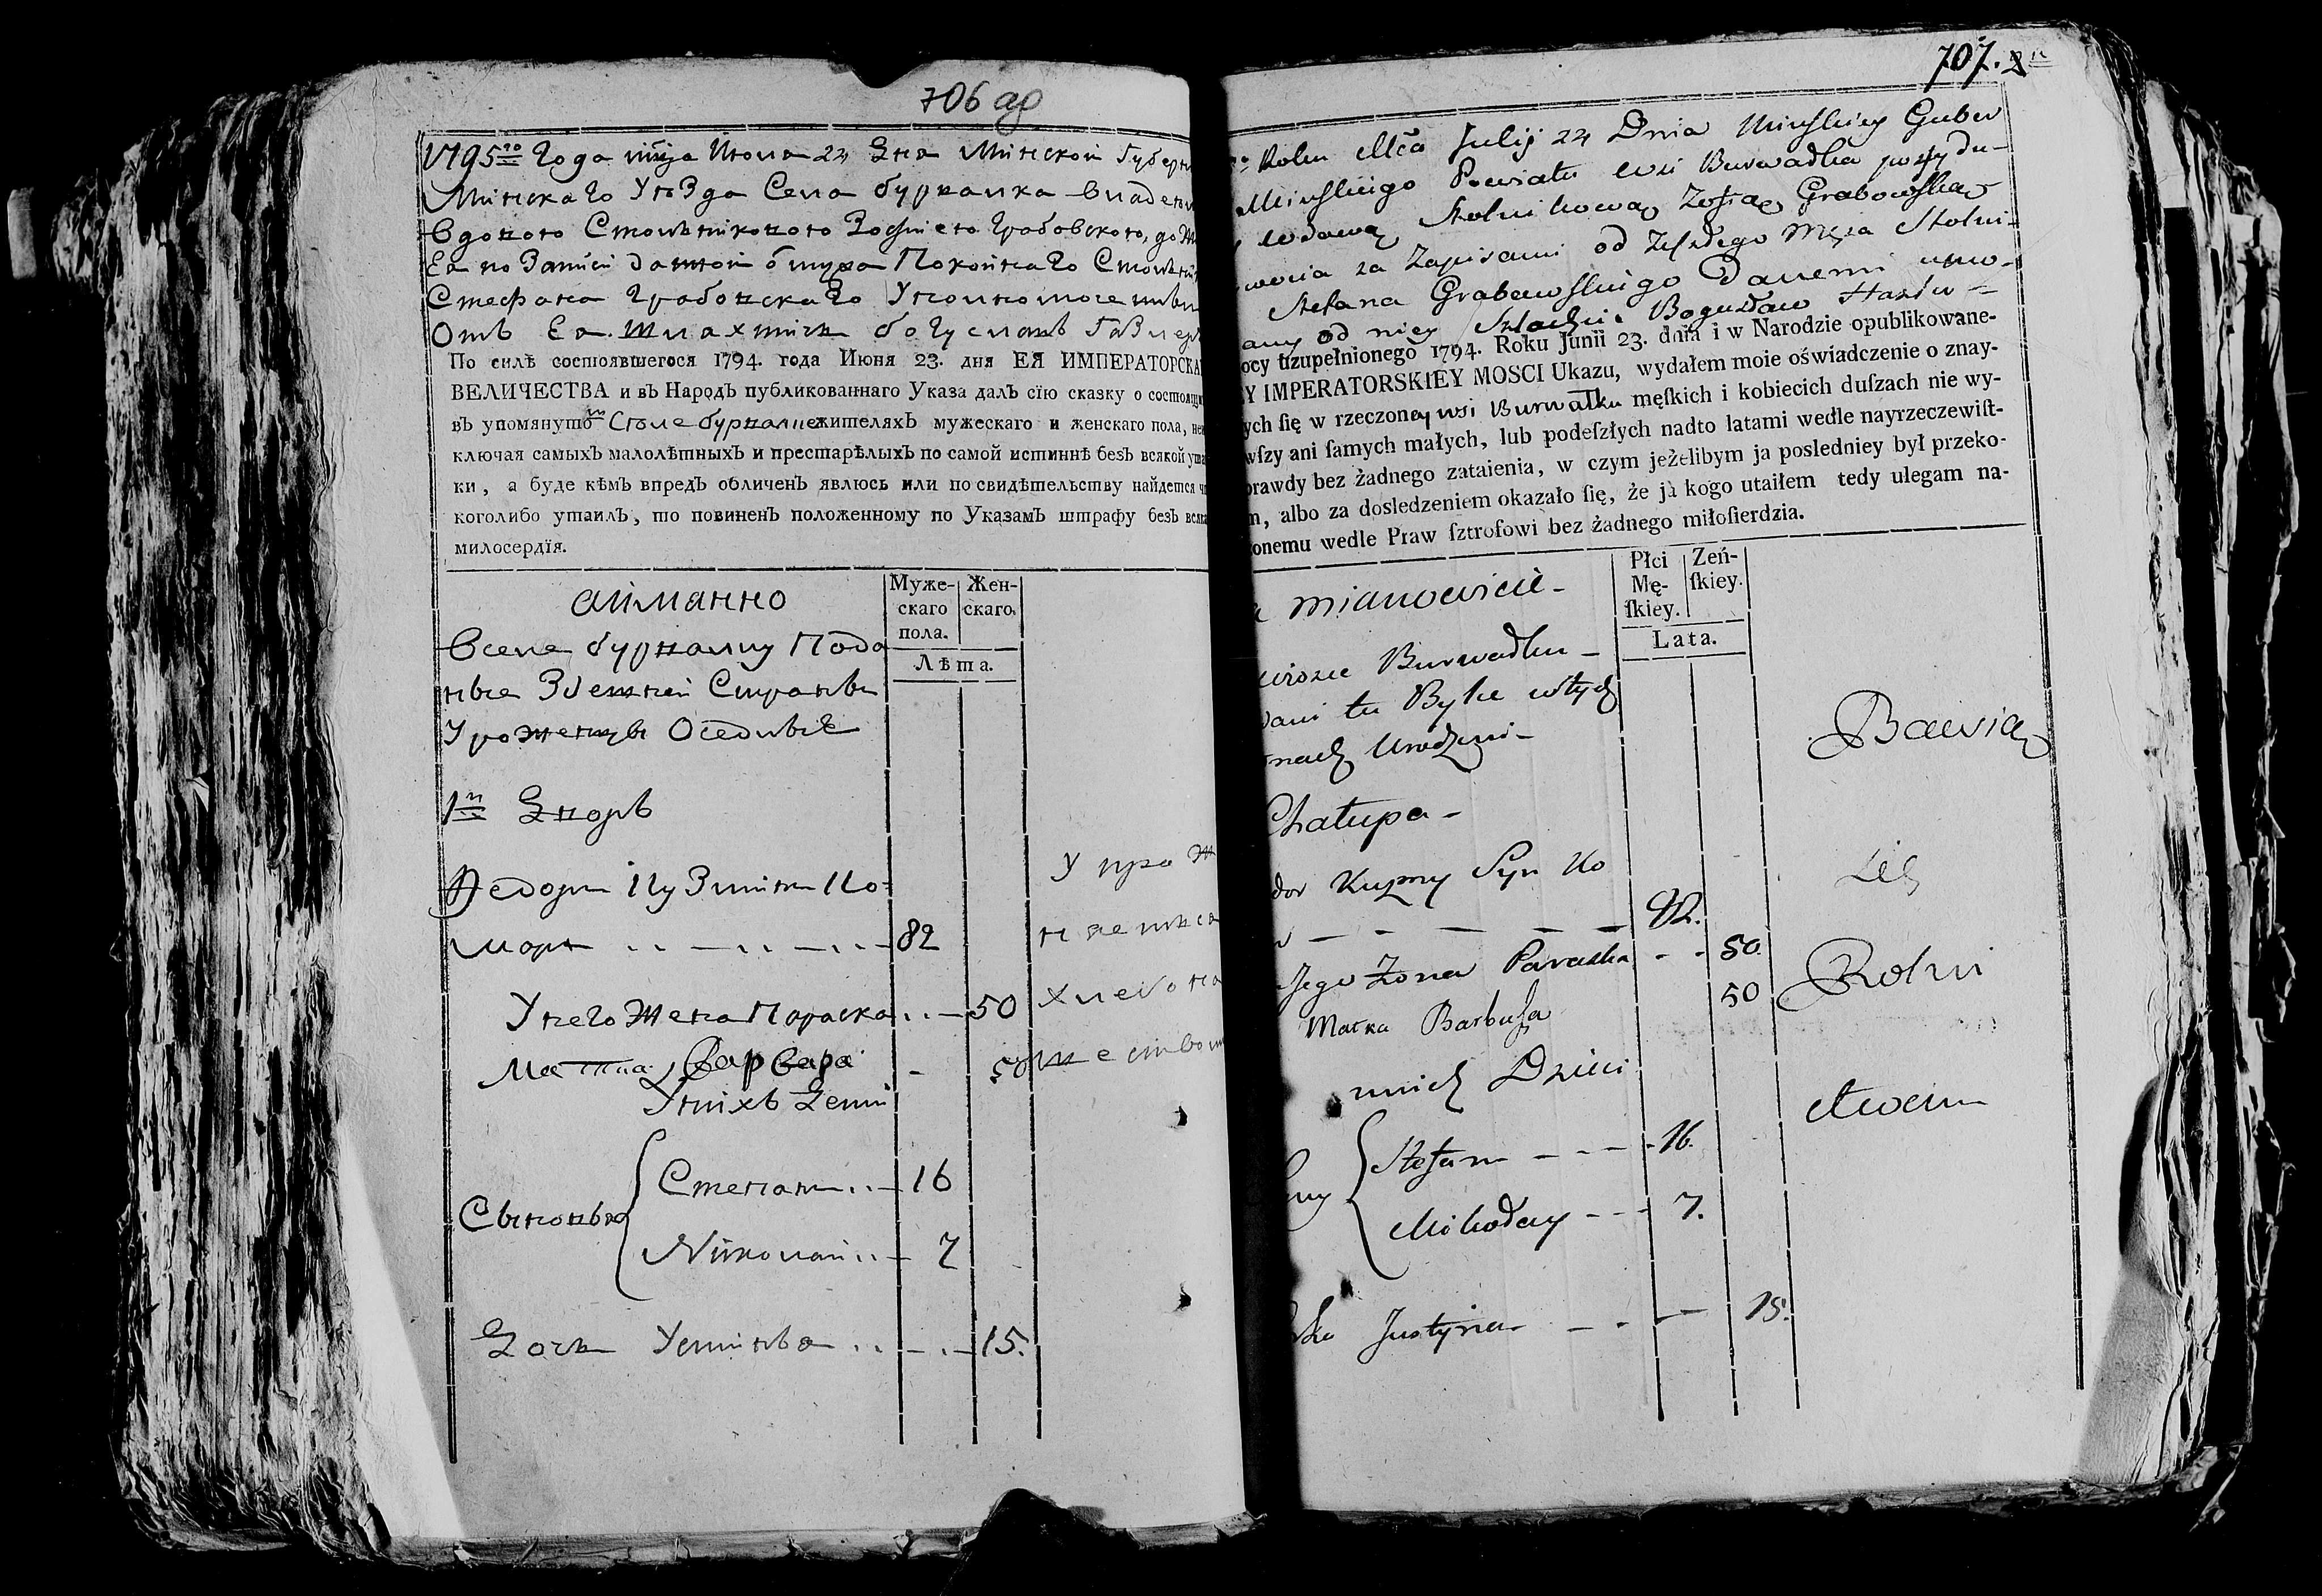 706 ар
1795го Года мца Июля 24 Дня Минской Губерн
Минскаго Уѣзда Села бурвалка владетел
вдовою Столниковою Зофиею Грабовскою, до
Ея по Записи данной отмужа Покойнаго Столни
Стефана Грабовскаго Уполномоченный
Отъ Ея Шляхтичь богуславъ
По силѣ состоявшегося 1794. года Июня 23. дня ЕЯ ИМПЕРАТОРСКА
ВЕЛИЧЕСТВА и въ Народъ публикованнаго Указа далъ сїю сказку о состоящи
въ упомянутомъ Селе бурвалке жителяхъ мужескаго и женскаго пола, неи
ключая самыхъ малолѣтныхъ и престарѣлыхъ по самой истиннѣ безъ всякой ута
ки, а буде кѣмъ впредъ обличенъ явлюсь или по свидѣтельству найдется ч
коголибо утаилъ, то повиненъ положенному по Указамъ штрафу безъ всяка
милосердїя.
аимянно
Муже-скаго пола.
Жен-скаго.
Лѣта.
Вселе бурвалку Пода
ные Здешней Страны
Уроженцы Оседлые
1й Дворъ
Федоръ Кузминъ Ко
маръ 82
У него Жена Параска 50
Матка Варвара 50
У нихъ Дети
Сыновья
Степанъ 16
Николай 7
Дочь Устинья 15.
У праж
няются
хлебопа
шеством
707.
Roku Mca Julij 24 Dnia Minskiey Guber
Minskiego Powiatu wsi Burwadka possydu-
wdową Stolnikową Zofią Grabowską
wocia za Zapisami od Zeszłego Męża Stolni-
Stefana Grabowskiego Danemi umo-
any od niey Szlachcic Bogusław
ocy uzupełnionego 1794. Roku Junii 23. dnia i w Narodzie opublikowane-
Y IMPERATORSKIEY MOSCI Ukazu, wydałem moie oświadczenie o znay-
ych się w rzeczoney wsi Burwałku męſkich i kobiecich duſzach nie wy-
wſzy ani ſamych małych, lub podeſzłych nadto latami wedle nayrzeczewiſt-
prawdy bez żadnego zataienia, w czym jeżelibym ja posledniey był przeko-
m, albo za dosledzeniem okazało ſię, że ja kogo utaiłem tedy ulegam na-
onemu wedle Praw ſztrofowi bez żadnego miłoſierdzia.
a mianowicie -
Płci Mę-ſkiey.
Zeń-ſkiey.
Lata.
wiosce Burwadku -
dani tu Byłe wtych
onach Urodzeni -
Chałupa -
dor Kuzmy Syn Ko
82.
Jego Żona Paraska - - 50.
Matka Barbusa 50
unich Dzieci
Syny
Stefan - - - 16.
Mikołay - - - 7.
Justyna - - - 15.
Bawią
się
Rolni
ctwem